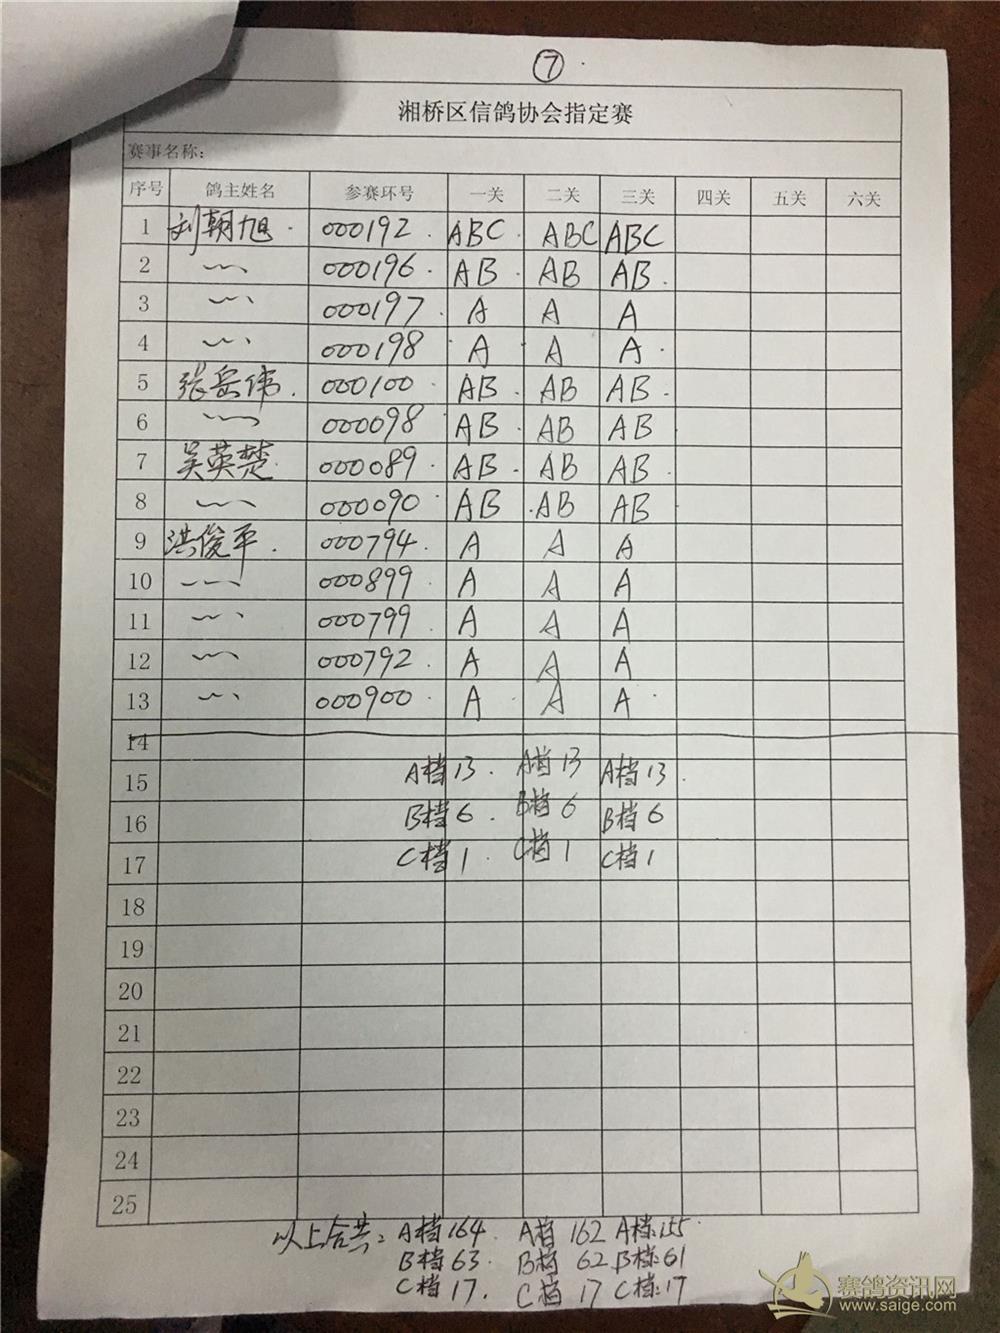 ⑦
湘桥区信鸽协会指定赛
赛事名称:
序号 鸽主姓名 参赛环号 一关 二关 三关 四关 五关 六关
1 刘朝旭. 000192. ABC. ABC ABC
2 000196. AB. AB AB.
3 000197. A A A
4 000198 A A A.
5 张岳伟. 000100. AB. AB AB.
6 000098 AB. AB AB
7 吴英楚. 000089. AB. AB AB
8 000090. AB .AB AB
9 洪俊平. 000794. A A A
10 000899 A A A
11 000799. A A A
12 000792. A A A
13 000900. A A A.
14
15 A档13. A档13 A档13.
16 B档6. B档6 B档6
17 C档1. C档1 C档1
18
19
20
21
22
23
24
25
以上合共: A档164. A档162 A档:155.
B档63. B档62 B档:61
C档17. C档17 C档:17
赛鸽资讯网
www.saige.com